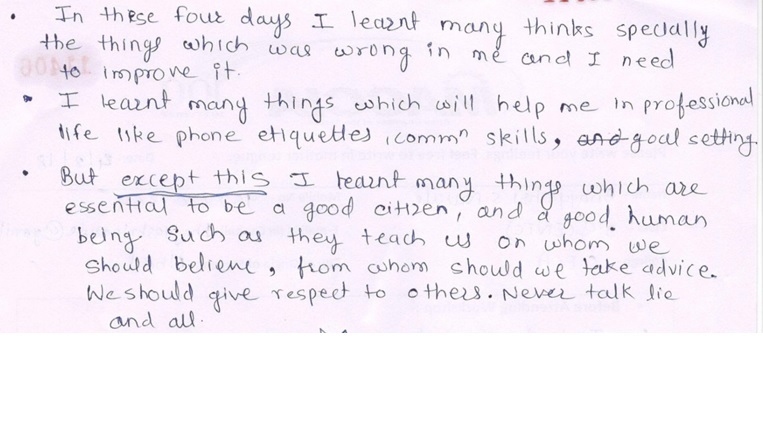 • In these four days I learnt many thinks specially
the things which was wrong in me and I need
to improve it.
• I learnt many things which will help me in professional
life like phone etiquettes, commⁿ skills, ~~and~~ goal setting.
• But except this I learnt many things which are
essential to be a good citizen, and a good human
being. Such as they teach us on whom we
should believe, from whom should we take advice.
We should give respect to others. Never talk lie
and all.